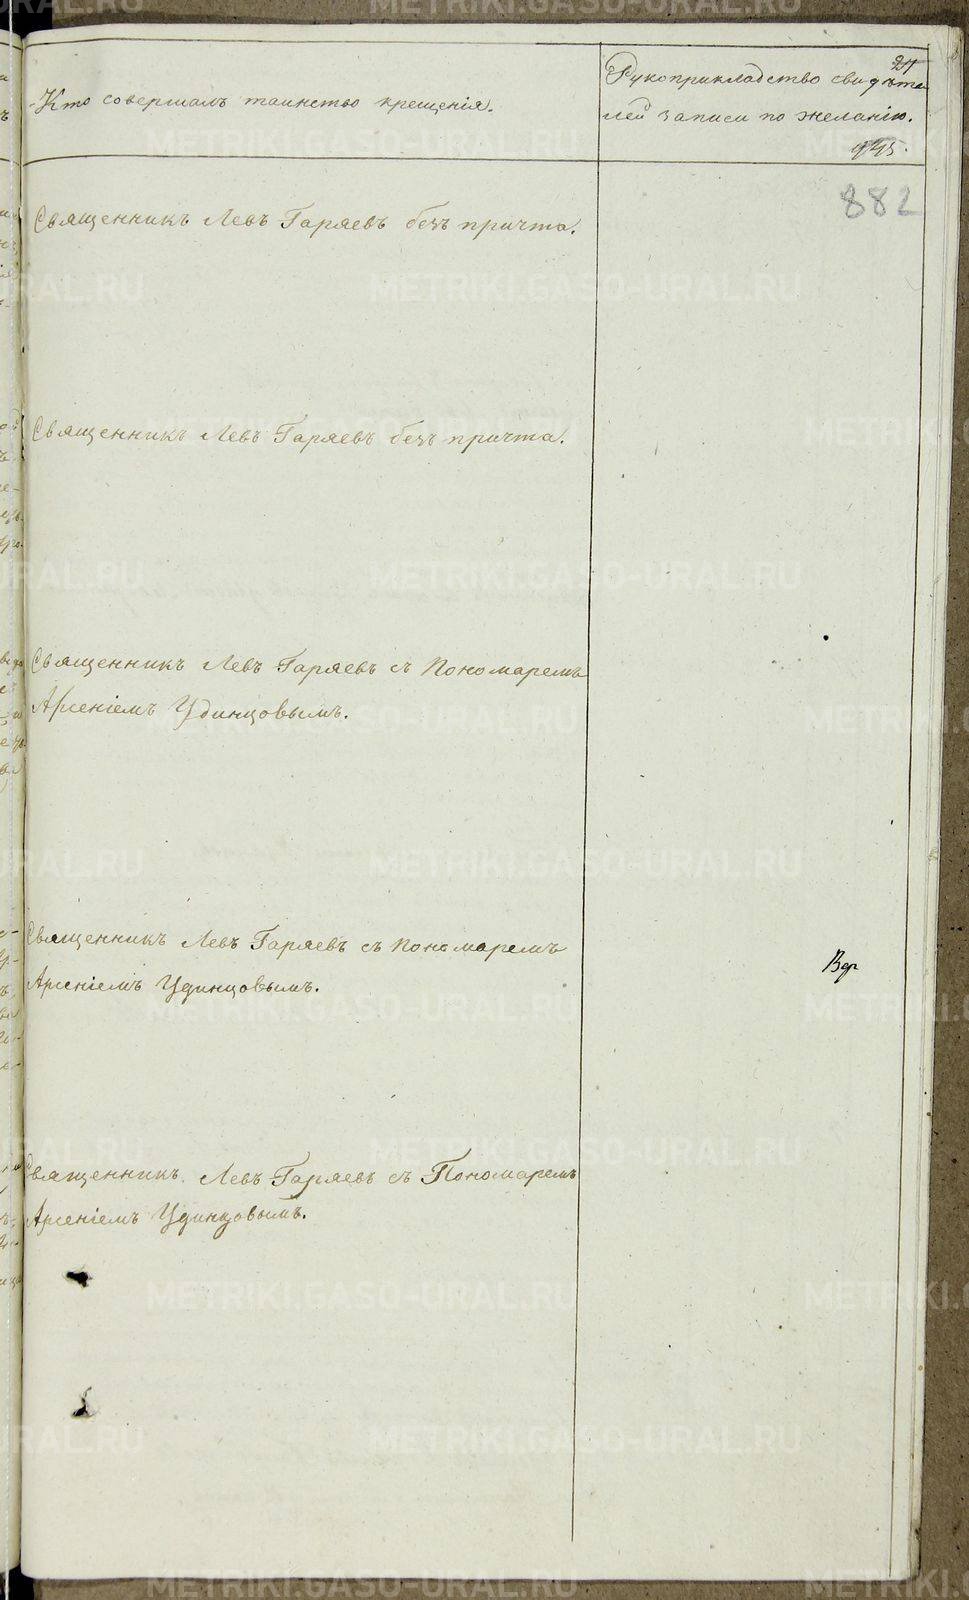 Кто совершалъ таинство крещенія.
Рукоприкладство свидѣте
лей записи по желанію.
945.
882
Священникъ Левъ Гаряевъ безъ причта.
Священникъ Левъ Гаряевъ безъ причта.
Священникъ Левъ Гаряевъ съ Пономаремъ
Арсеніемъ Удинцовымъ.
Священникъ Левъ Гаряевъ съ Пономаремъ
Арсеніемъ Удинцовымъ.
Священникъ Левъ Гаряевъ съ Пономаремъ
Арсеніемъ Удинцовымъ.
METRIKI.GASO-URAL.RU